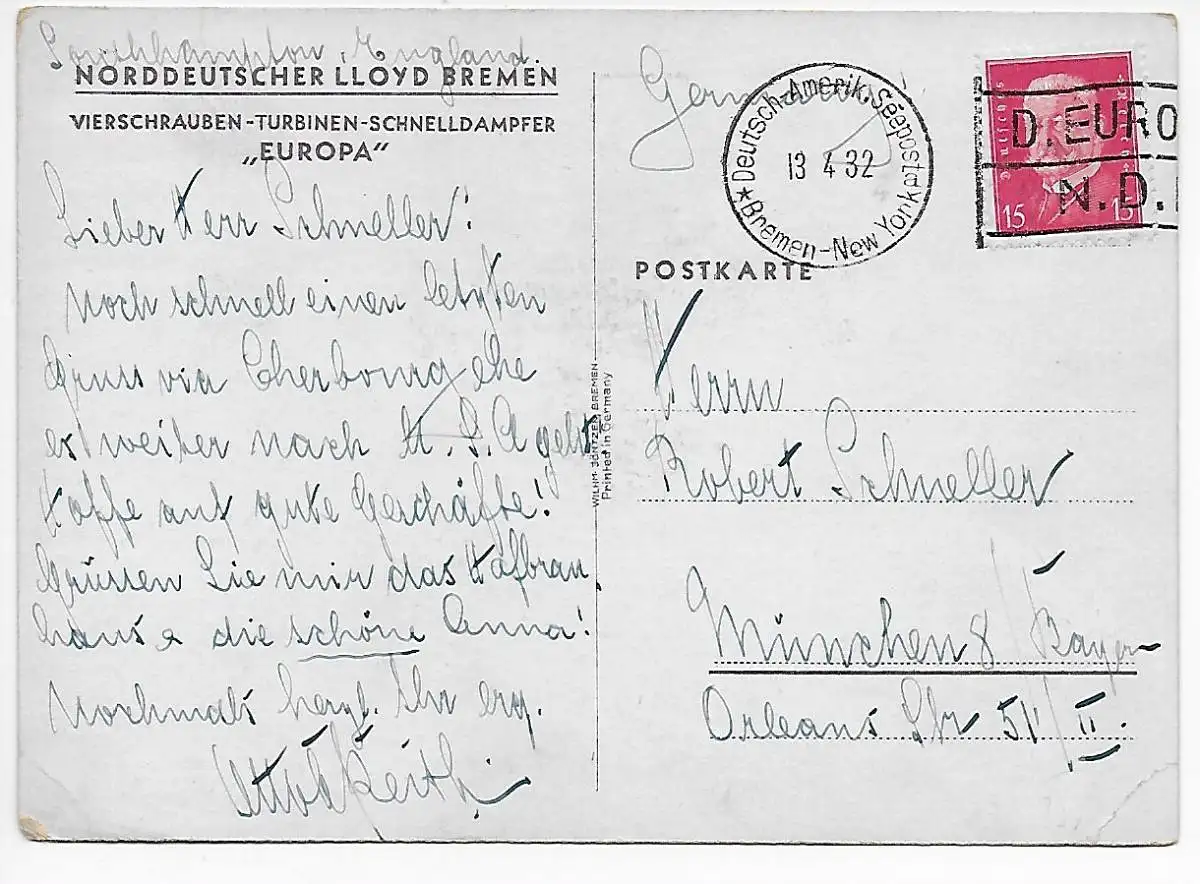 Southhampton, England.
NORDDEUTSCHER LLOYD BREMEN
VIERSCHRAUBEN-TURBINEN-SCHNELLDAMPFER
„EUROPA“
Lieber Herr Schneller!
Noch schnell einen letzten
Gruss via Cherbourg ehe
es weiter nach U.S.A geht
Hoffe auf gute Geschäfte!
Grüssen Sie mir das Hofbräu
haus & die schöne Anna!
Nochmals herzl. Ihr erg.
WILHM. JÖNTZEN, BREMEN
Printed in Germany
Germany
★ Deutsch-Amerik. Seepost ★ Bremen-New York
13 4 32
Deutsches Reich
15 15
D. EURO
N.D.
POSTKARTE
Herrn
Robert Schneller
München 8 / Bayern
Orleans Str 51/II.